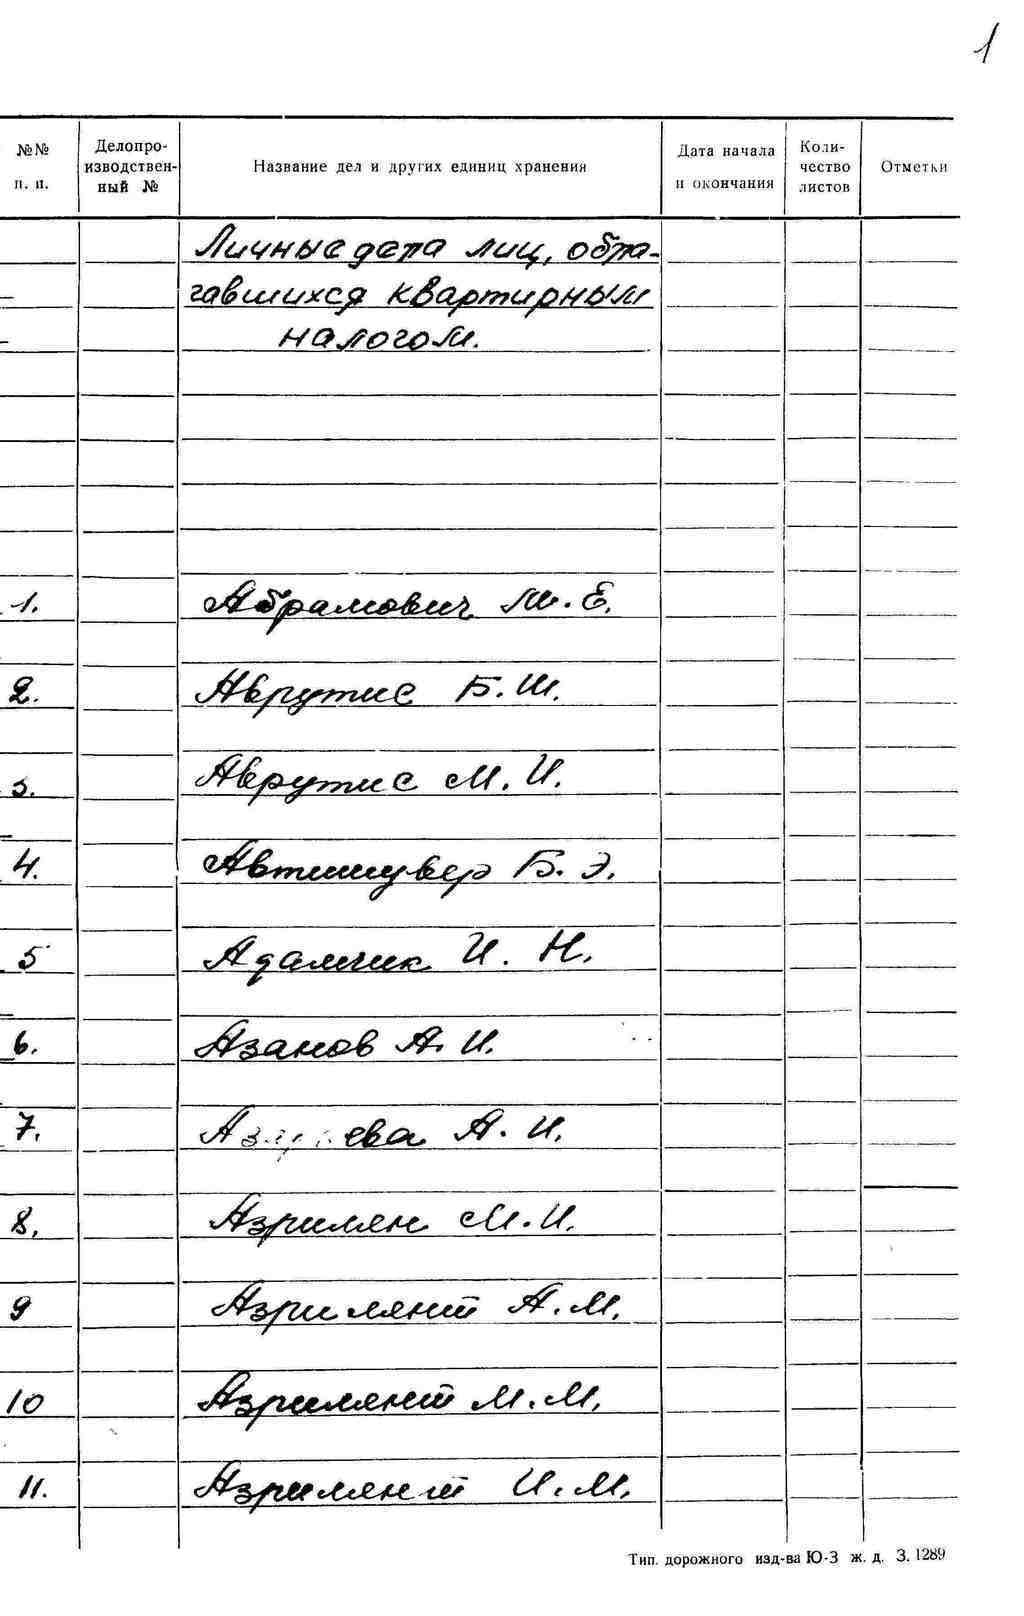 1
№№ п. п.
Делопро-
изводствен-
ный №
Название дел и других единиц хранения
Дата начала
и окончания
Коли-
чество
листов
Отметки
Личные дела лиц, обла-
гавшихся квартирным
налогом.
1. Абрамович М. Е.
2. Аврутис Б. Ш.
3. Аврутис М. И.
4. Автшшувер Б. Э.
5 Адамчик И. Н.
6. Азанов А. И.
7. А. И.
8. Азрилян М. И.
9 Азрилянт А. М.
10 Азрилянт М. М.
11. Азрилянт И. М.
Тип. дорожного изд-ва Ю-З ж. д. З. 1289